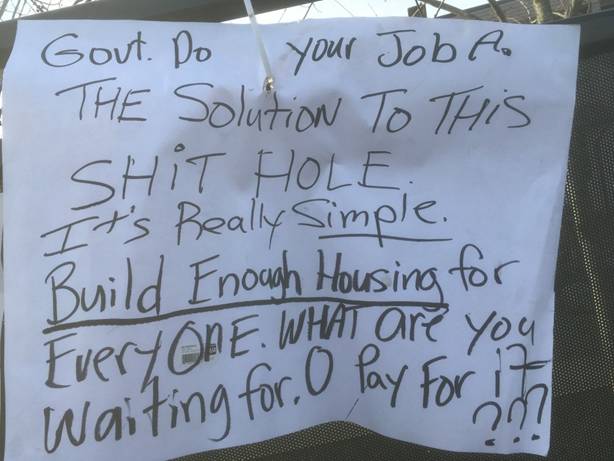 Govt. Do your Job A.
THE Solution To THiS
SHiT HOLE.
It's Really Simple.
Build Enough Housing for
EveryOnE. WHAT are you
Waiting for. O Pay For it
???